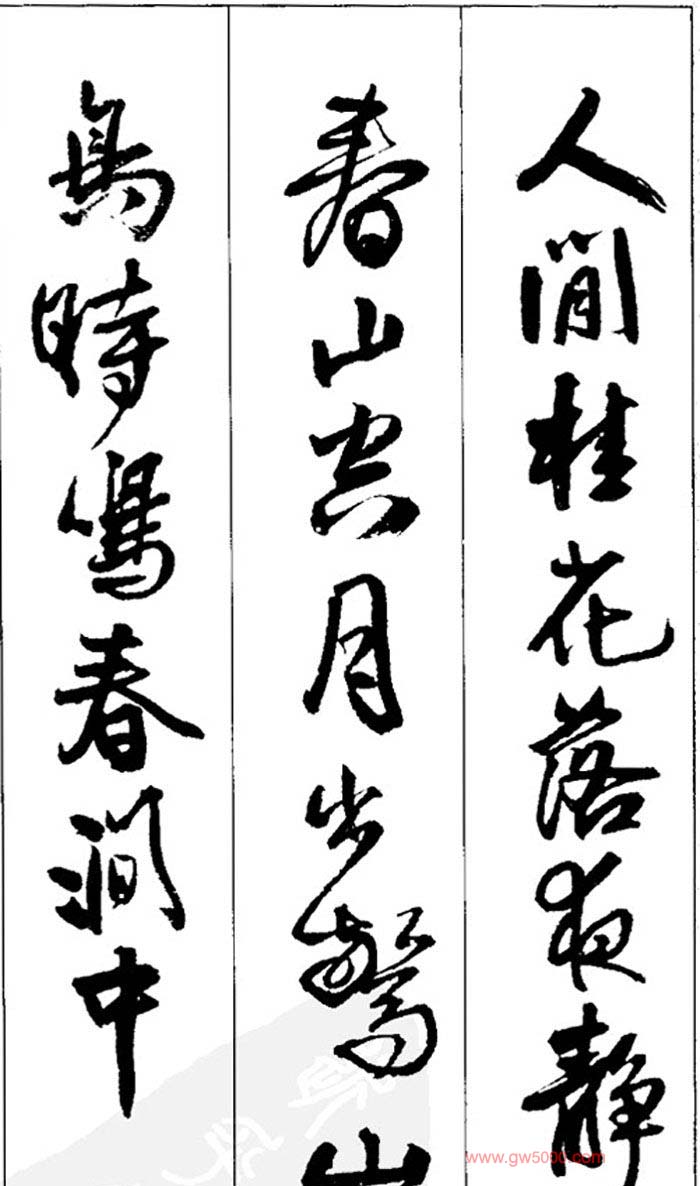 人閒桂花落夜靜
春山空月出驚山
鳥時鳴春澗中
www.gw5000.com